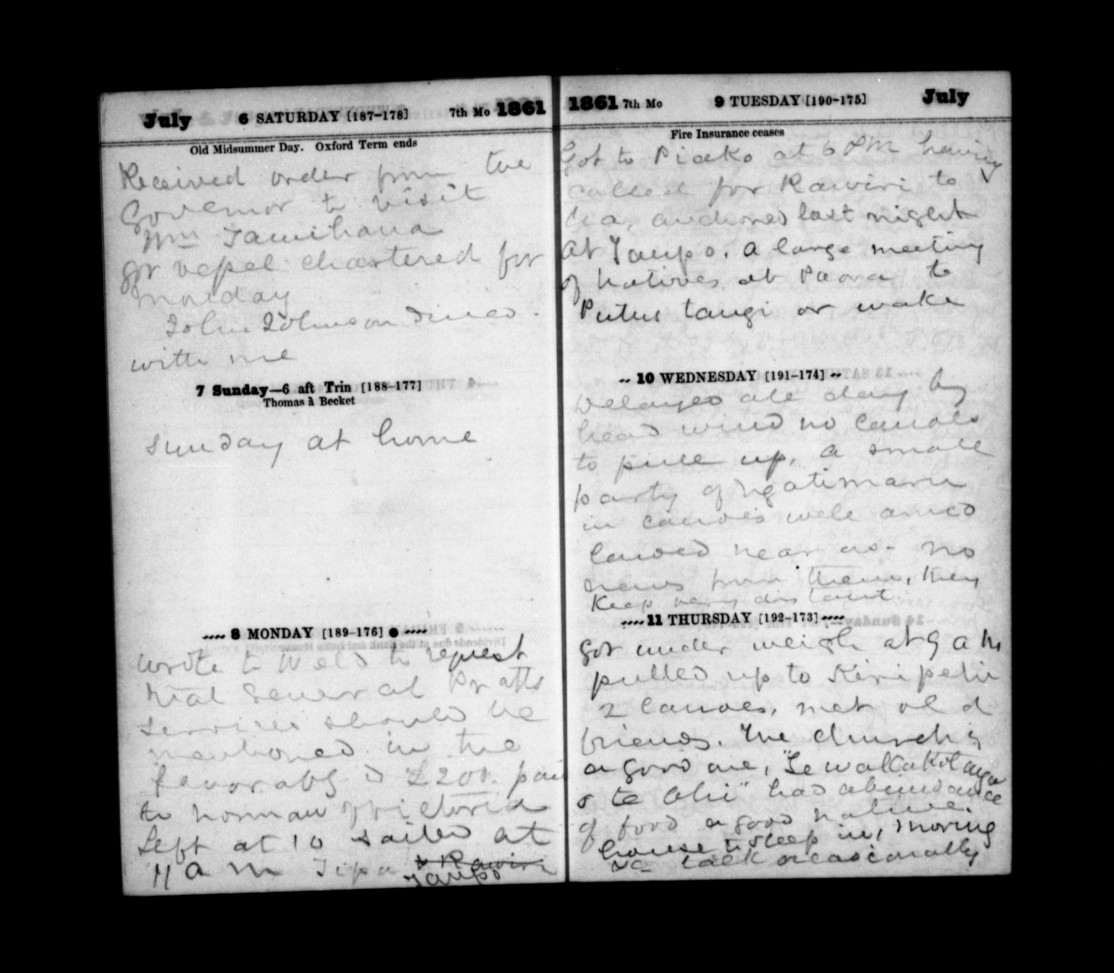 July 6 SATURDAY [187-178] 7th Mo 1861
Old Midsummer Day. Oxford Term ends
Received order from the
Governor to visit
Wm Tamihana
got vessel chartered for
Monday
John Johnson dined
with me
7 Sunday—6 aft Trin [188-177]
Thomas à Becket
Sunday at home
8 MONDAY [189-176]
wrote to Weld to request
that General Pratts
services should be
mentioned in the
favorably £200. paid
to Norman Victoria
Left at 10 sailed at
11 a m Tipa & Rawiri
Taupo
1861 7th Mo 9 TUESDAY [190-175] July
Fire Insurance ceases
Got to Piako at 6 PM having
called for Rawiri to
anchored last night
at Taupo. a large meeting
of natives at Paora to
Putus tangi or wake
10 WEDNESDAY [191-174]
Delayed all day by
head wind no canoes
to pull up, a small
party of Ngatimaru
in canoes well armed
landed near us. no
news from them, they
keep very distant.
11 THURSDAY [192-173]
Got under weigh at 9 a m
pulled up to Kiripehi
2 canoes, met old
friends. The church is
a good one,
has abundance
of food a good native
house to sleep in, moving
talk occasionally